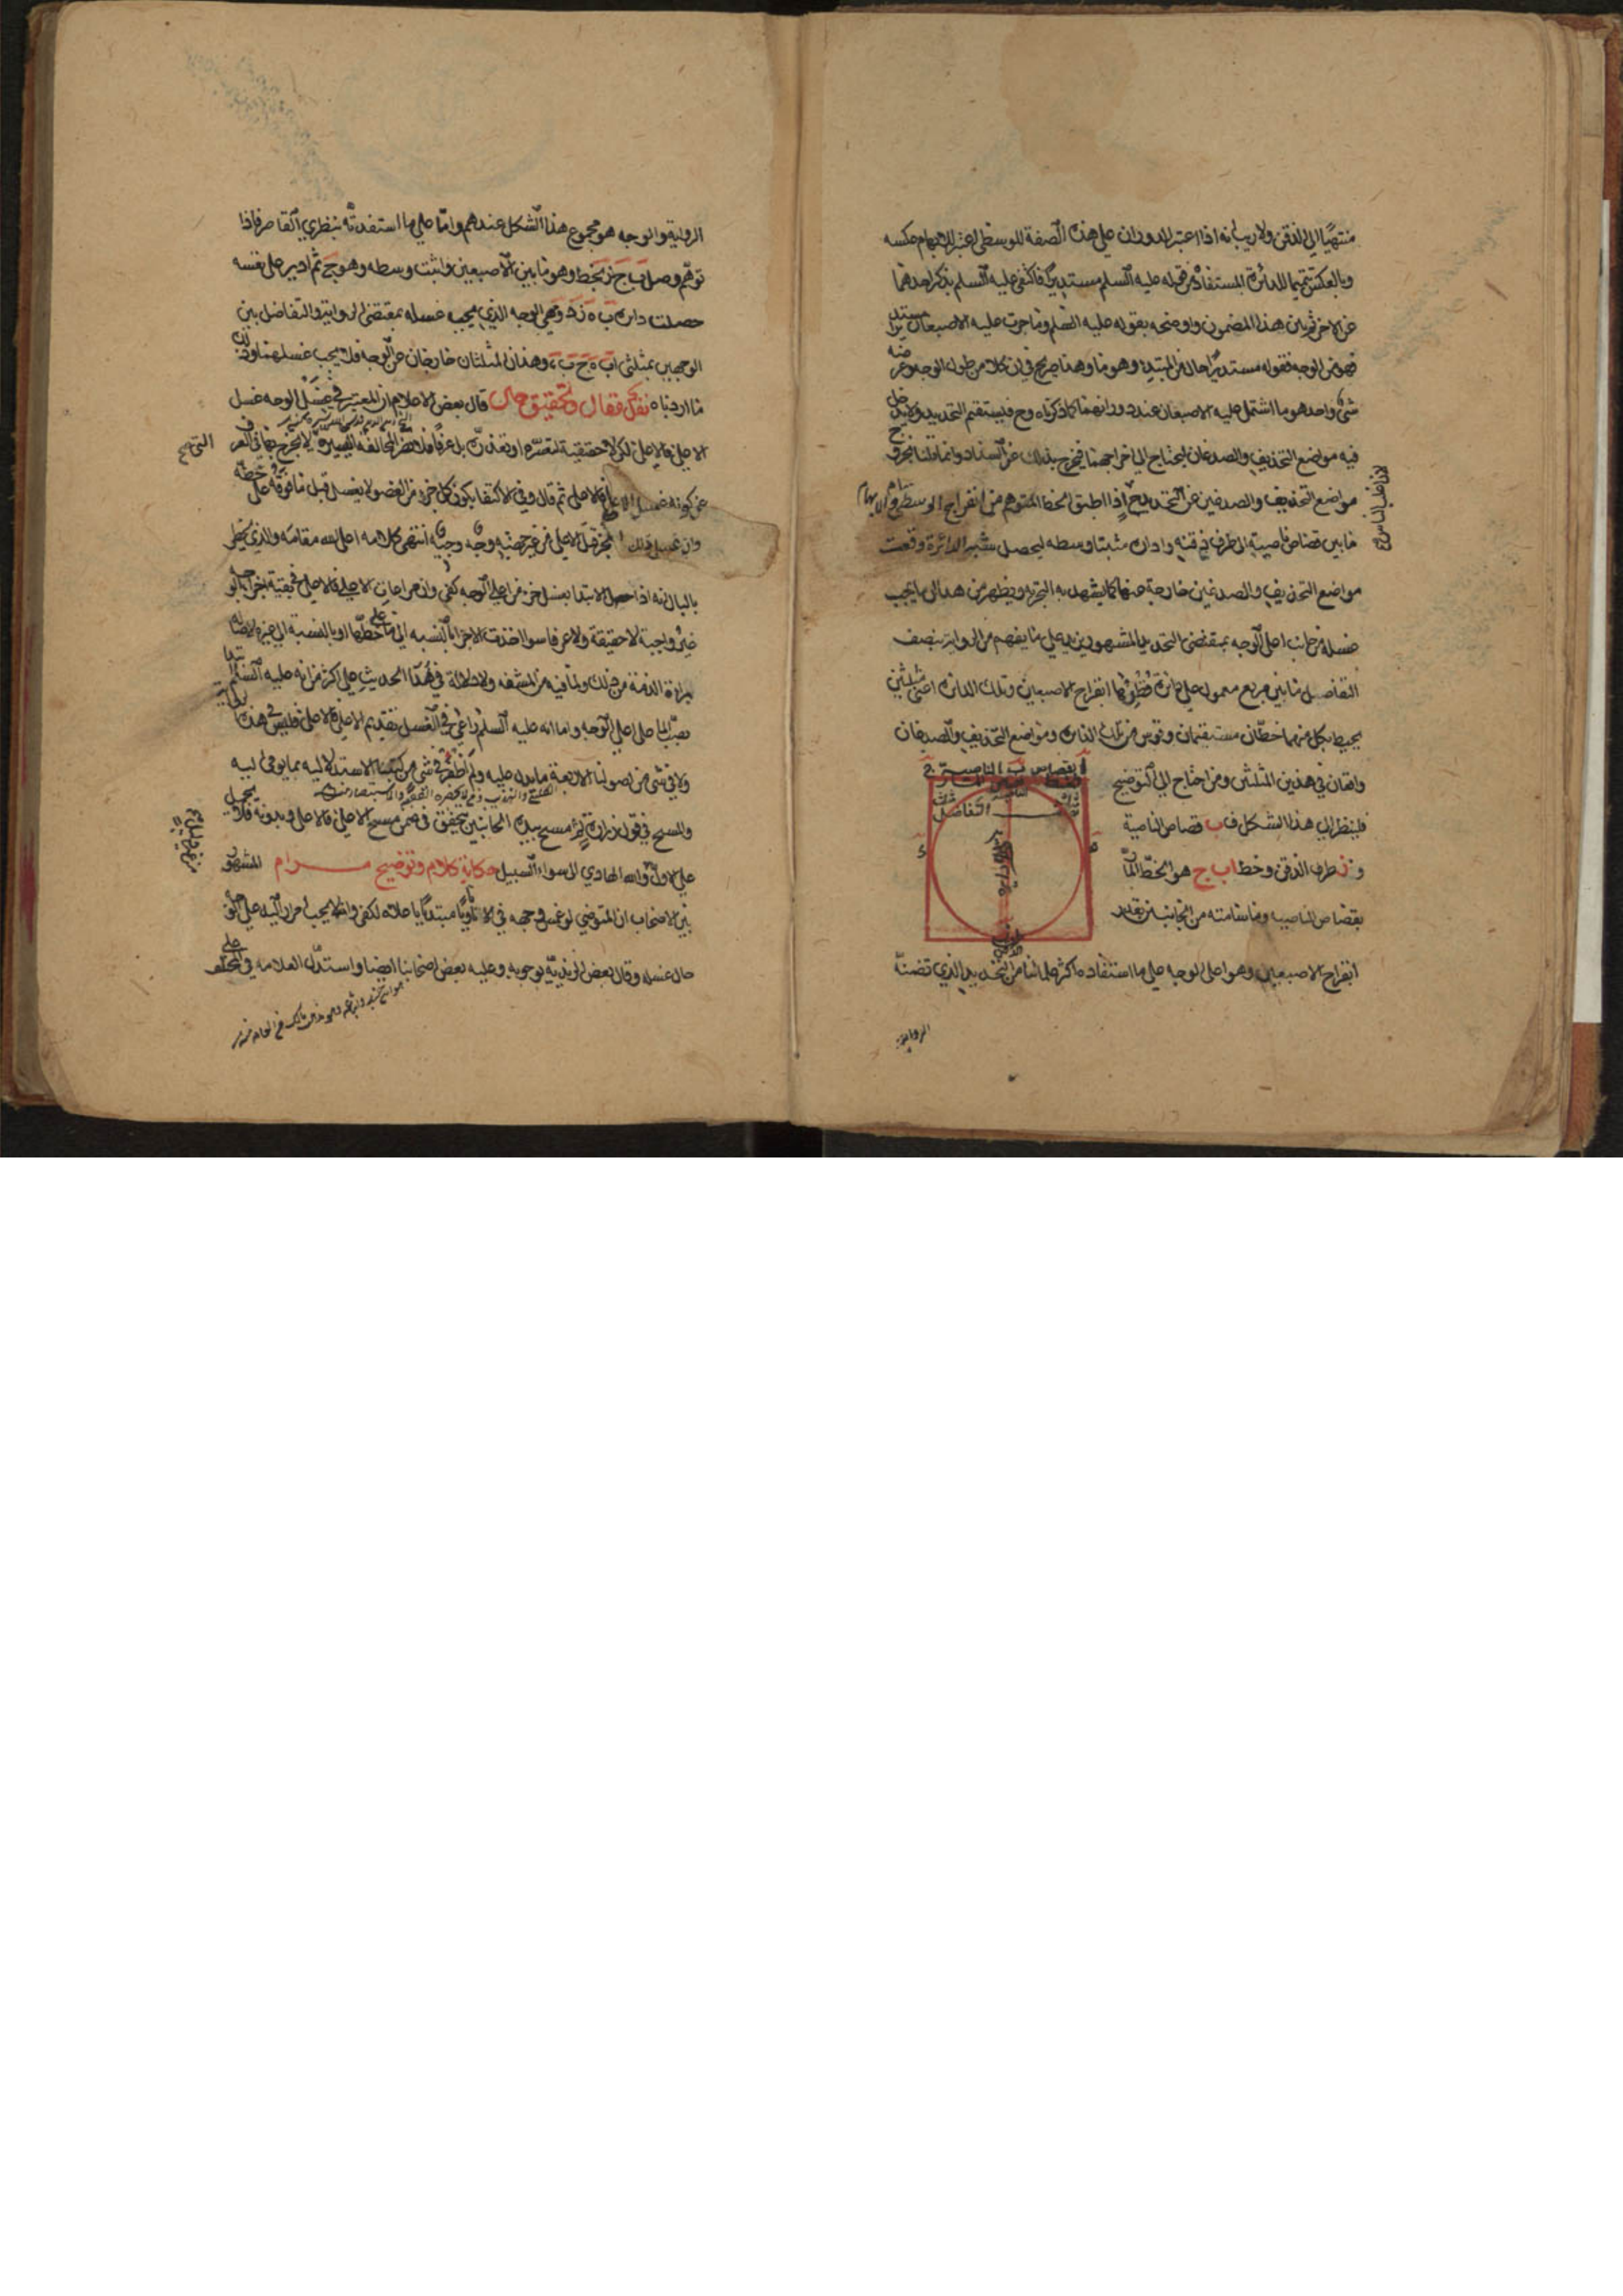 منتهيًا الى الذقن ولا ريب انه اذا اعتبر الدوران على هذه الصفة للوسطى اعتبر للابهام عكسه
وبالعكس تتميما للدائرة المستفادة من قوله عليه السلم مستديرًا فاكتفى عليه السلم بذكر احدهما
عن الاخر ثم بين هذا المضمون واوضحه بقوله عليه السلم وما جرت عليه الاصبعان مستديرًا
فهو من الوجه فقوله مستديرًا حال من المبتدا وهو ما وهذا صريح في ان كلا من طول الوجه وعرضه
شئ واحد هو ما اشتمل عليه الاصبعان عند دورانهما كما ذكرناه وح فيستقيم التحديد ولا يدخل
فيه مواضع التحذيف والصدغان ليحتاج الى اخراجهما فيخرج بذلك عن السداد وانما قلنا بخروج
مواضع التحذيف والصدغين عن التحديد ح اذا طبق الخط المتوهم من انفراج الوسطى والابهام
ما بين قصاص ناصيته الى طرف ذقنه واداره مثبتا وسطه ليحصل شبه الدائرة وقعت
مواضع التحذيف والصدغين خارجة عنها كما يشهد به التجربة ويظهر من هذا ان ما يجب
غسله من جانب اعلى الوجه بمقتضى التحديد المشهور يزيد على ما يفهم من الرواية بنصف
التفاضل ما بين مربع معمول على دائرة قطرها انفراج الاصبعين وتلك الدائرة اعنى مثلثين
يحيط بكل منهما خطان مستقيمان وقوس من تلك الدائرة ومواضع التحذيف والصدغان
واقعان في هذين المثلثين ومن احتاج الى التوضيح
فلينظر الى هذا الشكل ف ب قصاص الناصية
و ز طرف الذقن وخط ا ب ج هو الخط المار
بقصاص الناصيه وما سامته من الجانبين بقدر
انفراج الاصبعين وهو اعلى الوجه على ما استفاده اكثر علمائنا من التحديد الذي تضمنه
الرواية
الرواية والوجه هو مجموع هذا الشكل عندهم واما على ما استفدته بنظري القاصر فاذا
توهم وصل ب ج ز بخط وهو ما بين الاصبعين واثبت وسطه وهو ح ثم ادير على نفسه
حصلت دائرة ب ه ز د وهي الوجه الذي يجب غسله بمقتضى الرواية والتفاضل بين
الوجهين بمثلثى ا ب ه ج ب د وهذان المثلثان خارجان عن الوجه فلا يجب غسلهما وذلك
ما اردناه نقل مقال وتحقيق حال قال بعض الاعلام ان المعتبر في غسل الوجه غسل
الاعلى فالاعلى لكن لا حقيقية لتعسره او تعذره بل عرفا فلا تضر المخالفة اليسيرة التي لا يخرج بها في العرف
عن كونه غسل الاعلى فالاعلى ثم قال وفي الاكتفا بكون كل جزء من العضو لا يغسل قبل ما فوقه على خطه
وان غسل ذلك الجزء قبل الاعلى من غير جهته وجه وجيه انتهى كلامه اعلى الله مقامه والذي يخطر
بالبال انه اذا حصل الابتدا بغسل جزء من اعلى الوجه كفى وان مراعات الاعلى فالاعلى في بقية اجزاء الوجه
غير واجبة لا حقيقة ولا عرفا سوا اخذت الاجزاء بالنسبه الى ما على خطها او بالنسبة الى غيره لاصالة
براءة الذمة من ذلك ولما فيه من المشقه ولا دلالة في هذا الحديث على اكثر من انه عليه السلم ابتدا
بصب الماء على اعلى الوجه واما انه عليه السلم راعى في الغسل تقديم الاعلى فالاعلى فليس في هذا الحديث
ولا في شئ من اصولنا الاربعة ما يدل عليه ولم اظفر في شئ من كتبنا الاستدلالية بما يومى اليه
والمسح في قول زرارة ثم مسح بيده الجانبين يتحقق في ضمن مسح الاعلى فالاعلى وبدونه فلا يحمل
على الاول والله الهادي الى سواء السبيل حكاية كلام وتوضيح مرام المشهور
بين الاصحاب ان المتوضي لو غمس وجهه في الاناء ناويا مبتدأ باعلاه لكفى وانه لا يجب امرار اليد على الوجه
حال غسله وقال بعض الزيدية بوجوبه وعليه بعض اصحابنا ايضا واستدل العلامه في المختلف على